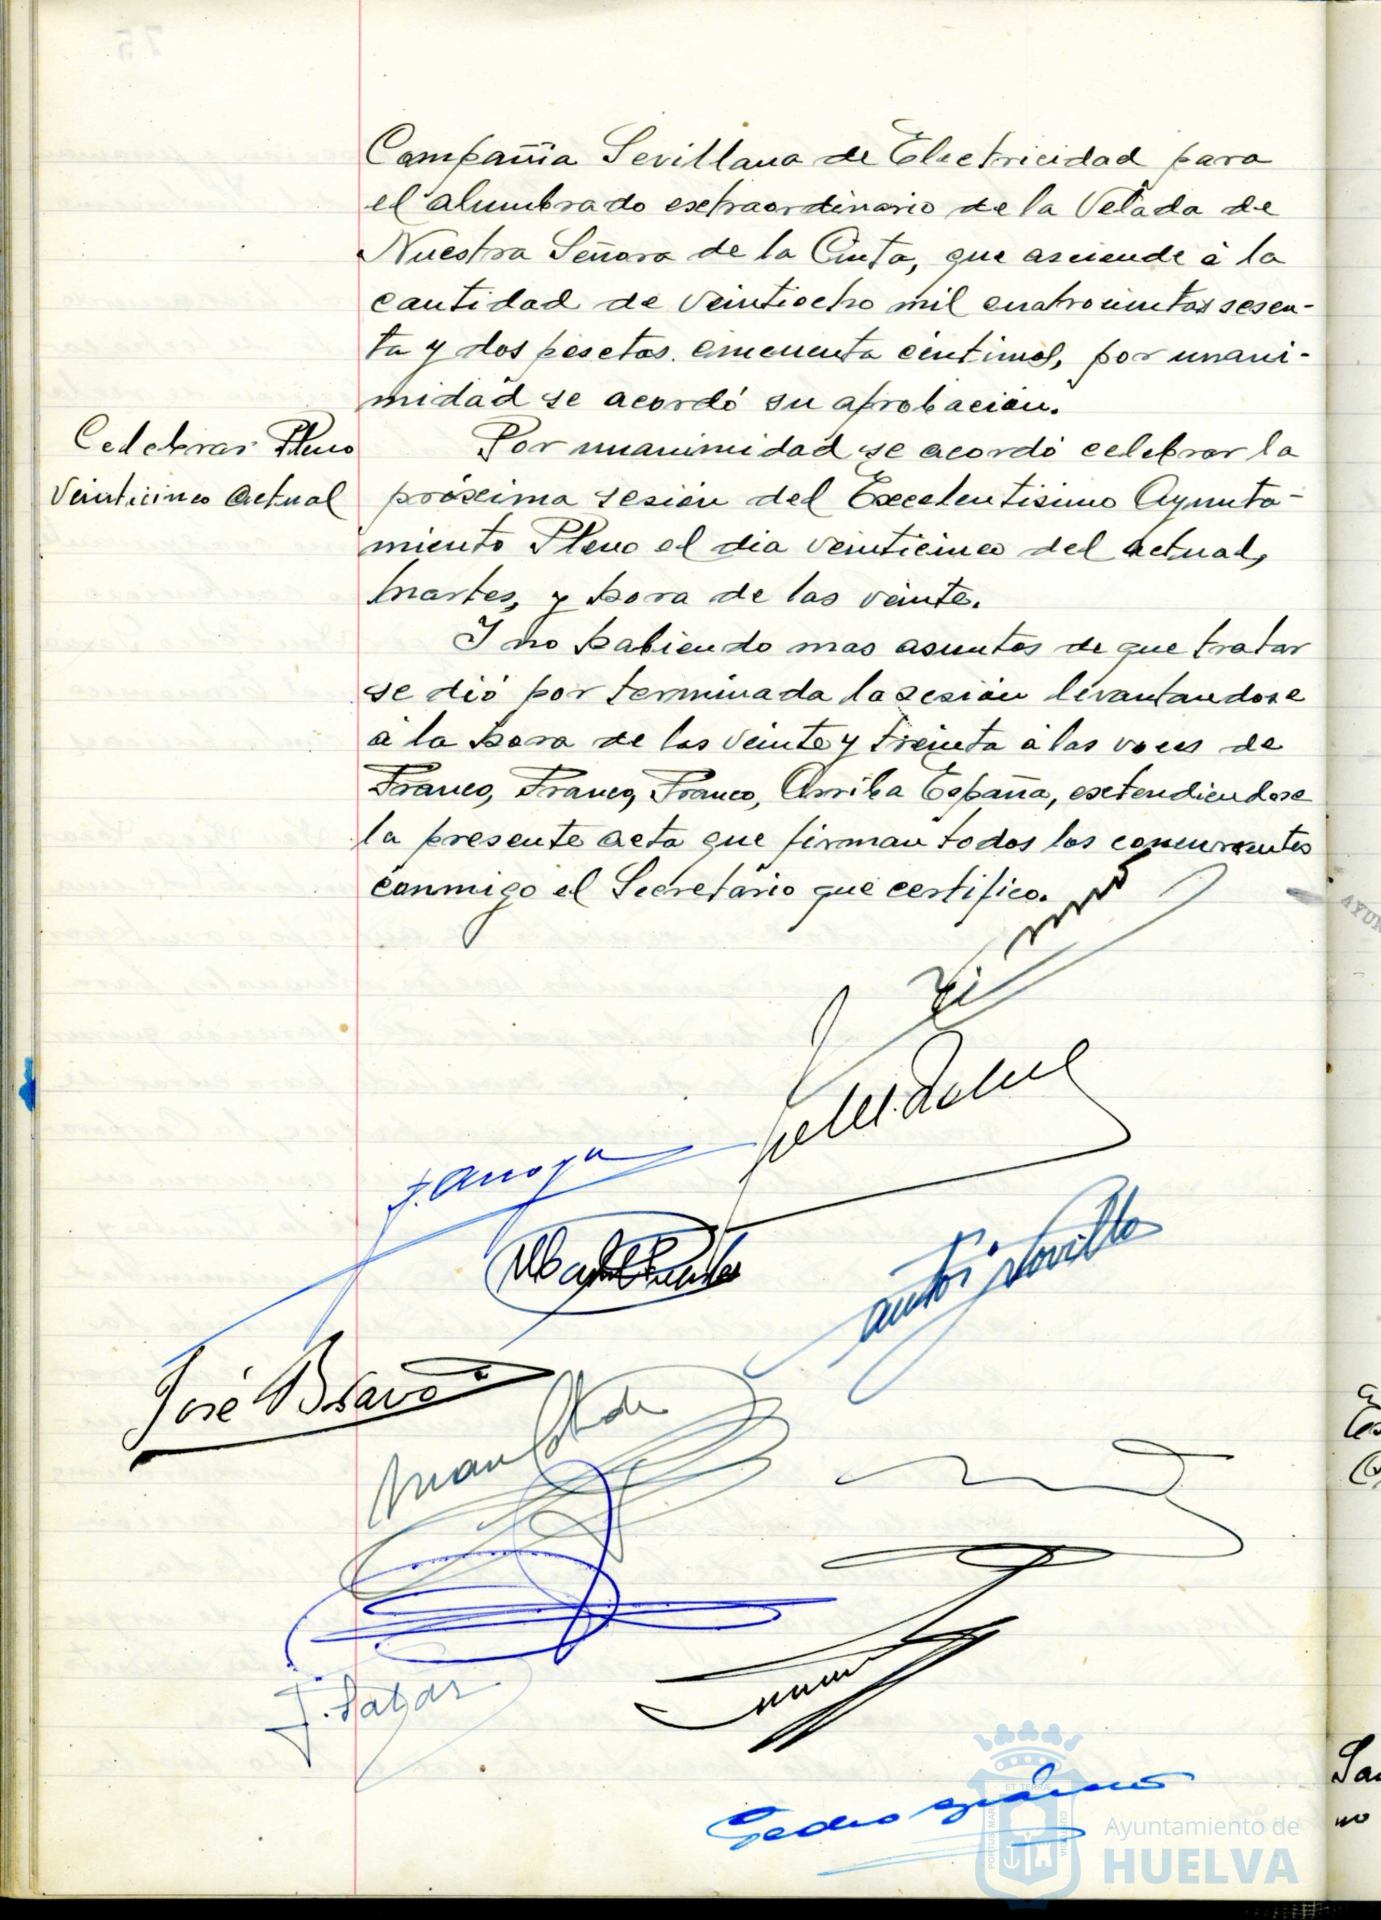 Compañia Sevillana de Electricidad para
el alumbrado extraordinario de la Velada de
Nuestra Señora de la Cinta, que asciende á la
cantidad de veintiocho mil cuatrocientas sesen-
ta y dos pesetas cincuenta céntimos, por unani-
midad se acordó su aprobación.
Celebrar Pleno
veinticinco actual
Por unanimidad se acordó celebrar la
próxima sesión del Excelentisimo Ayunta-
miento Pleno el dia veinticinco del actual,
martes, y hora de las veinte.
Y no habiendo mas asuntos de que tratar
se dió por terminada la sesión levantandose
á la hora de las veinte y treinta á las voces de
Franco, Franco, Franco, Arriba España, extendiendose
la presente acta que firman todos los concurrentes
conmigo el Secretario que certifico.
José Bravo
Pedro
Ayuntamiento de
HUELVA